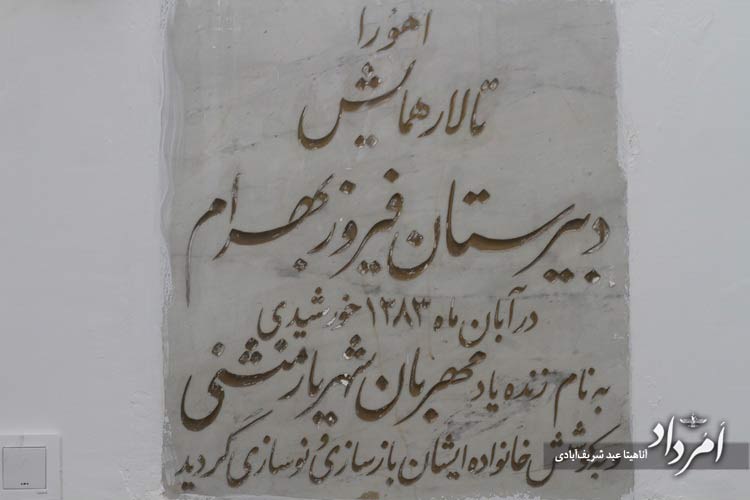 اهورا
تالار همایش
دبیرستان فیروز بهرام
در آبان ماه ۱۳۸۳ خورشیدی
به نام زنده یاد مهربان شهریار منشنی
و به کوشش خانواده ایشان بازسازی و نوسازی گردید
اَمُرداد
آناهیتا عبد شریف‌آبادی